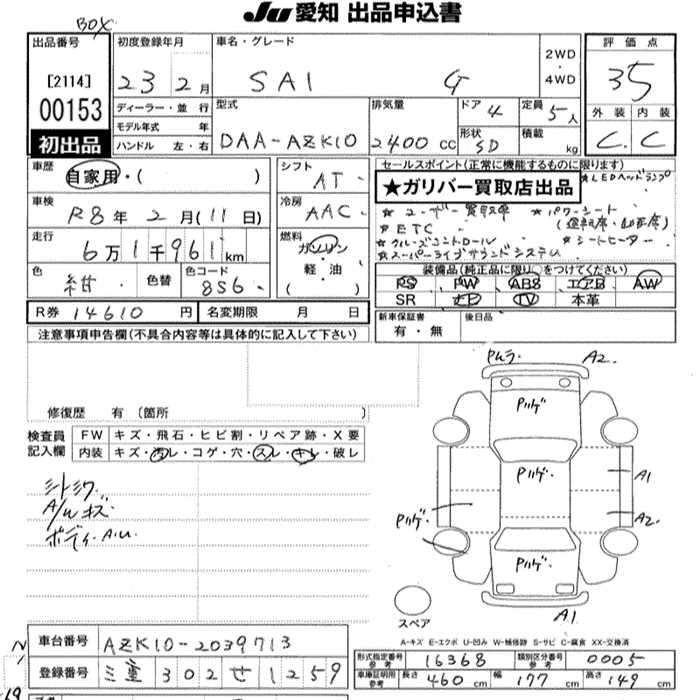 Ju 愛知 出品申込書
BOX
出品番号 初度登録年月 車名・グレード 2WD・4WD 評価点
[2114] 23 2月 SAI G 3.5
00153 ディーラー・並行 型式 排気量 ドア 4 定員 5人 外装 内装
モデル年式 年 形状 SD 積載 kg
初出品 ハンドル 左・右 DAA-AZK10 2400 CC C C
車歴 自家用・( ) シフト AT セールスポイント(正常に機能するものに限ります)
★LEDヘッドランプ
★ガリバー買取店出品
車検 R8年 2月(11日) 冷房 AAC
★ユーザー買取車 ★パワーシート
★ETC
★クルーズコントロール ★シートヒーター
★スーパーライブサウンドシステム
走行 6万1千961km 燃料 ガソリン・軽・油
色 紺 色替 色コード 8S6
装備品(純正品に限り○をつけてください)
PS PW ABS エアB AW
SR ナビ TV 本革
R券 14610円 名変期限 月 日 新車保証書 有・無 後日品
注意事項申告欄(不具合内容等は具体的に記入して下さい)
修復歴 有 (箇所 )
検査員記入欄 FW キズ・飛石・ヒビ割・リペア跡・X要
内装 キズ・汚レ・コゲ・穴・スレ・キレ・破レ
シートシワ
A/Wキズ
ボディA.U
A2
Pハゲ
Pハゲ
A1
Pハゲ A2
Pハゲ
A1
スペア
A-キズ E-エクボ U-凹み W-補修跡 S-サビ C-腐食 XX-交換済
車台番号 AZK10-2039713
登録番号 三重 302 せ 1259
形式指定番号 参考 16368 類別区分番号 参考 0005
車庫証明用 参考 長さ 460cm 幅 177cm 高さ 149cm